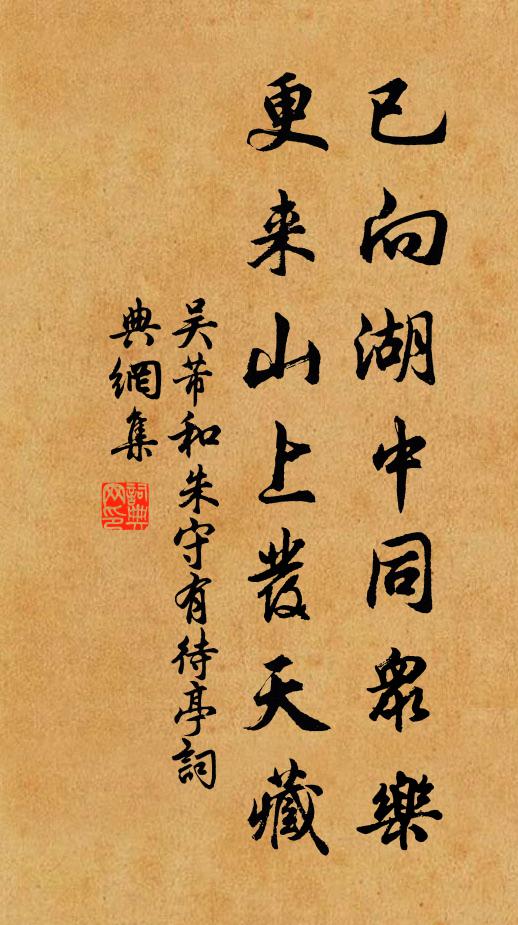 已向湖中同衆樂
更来山上發天藏
吴芾和朱守有待亭詞
典網集
詞典網印